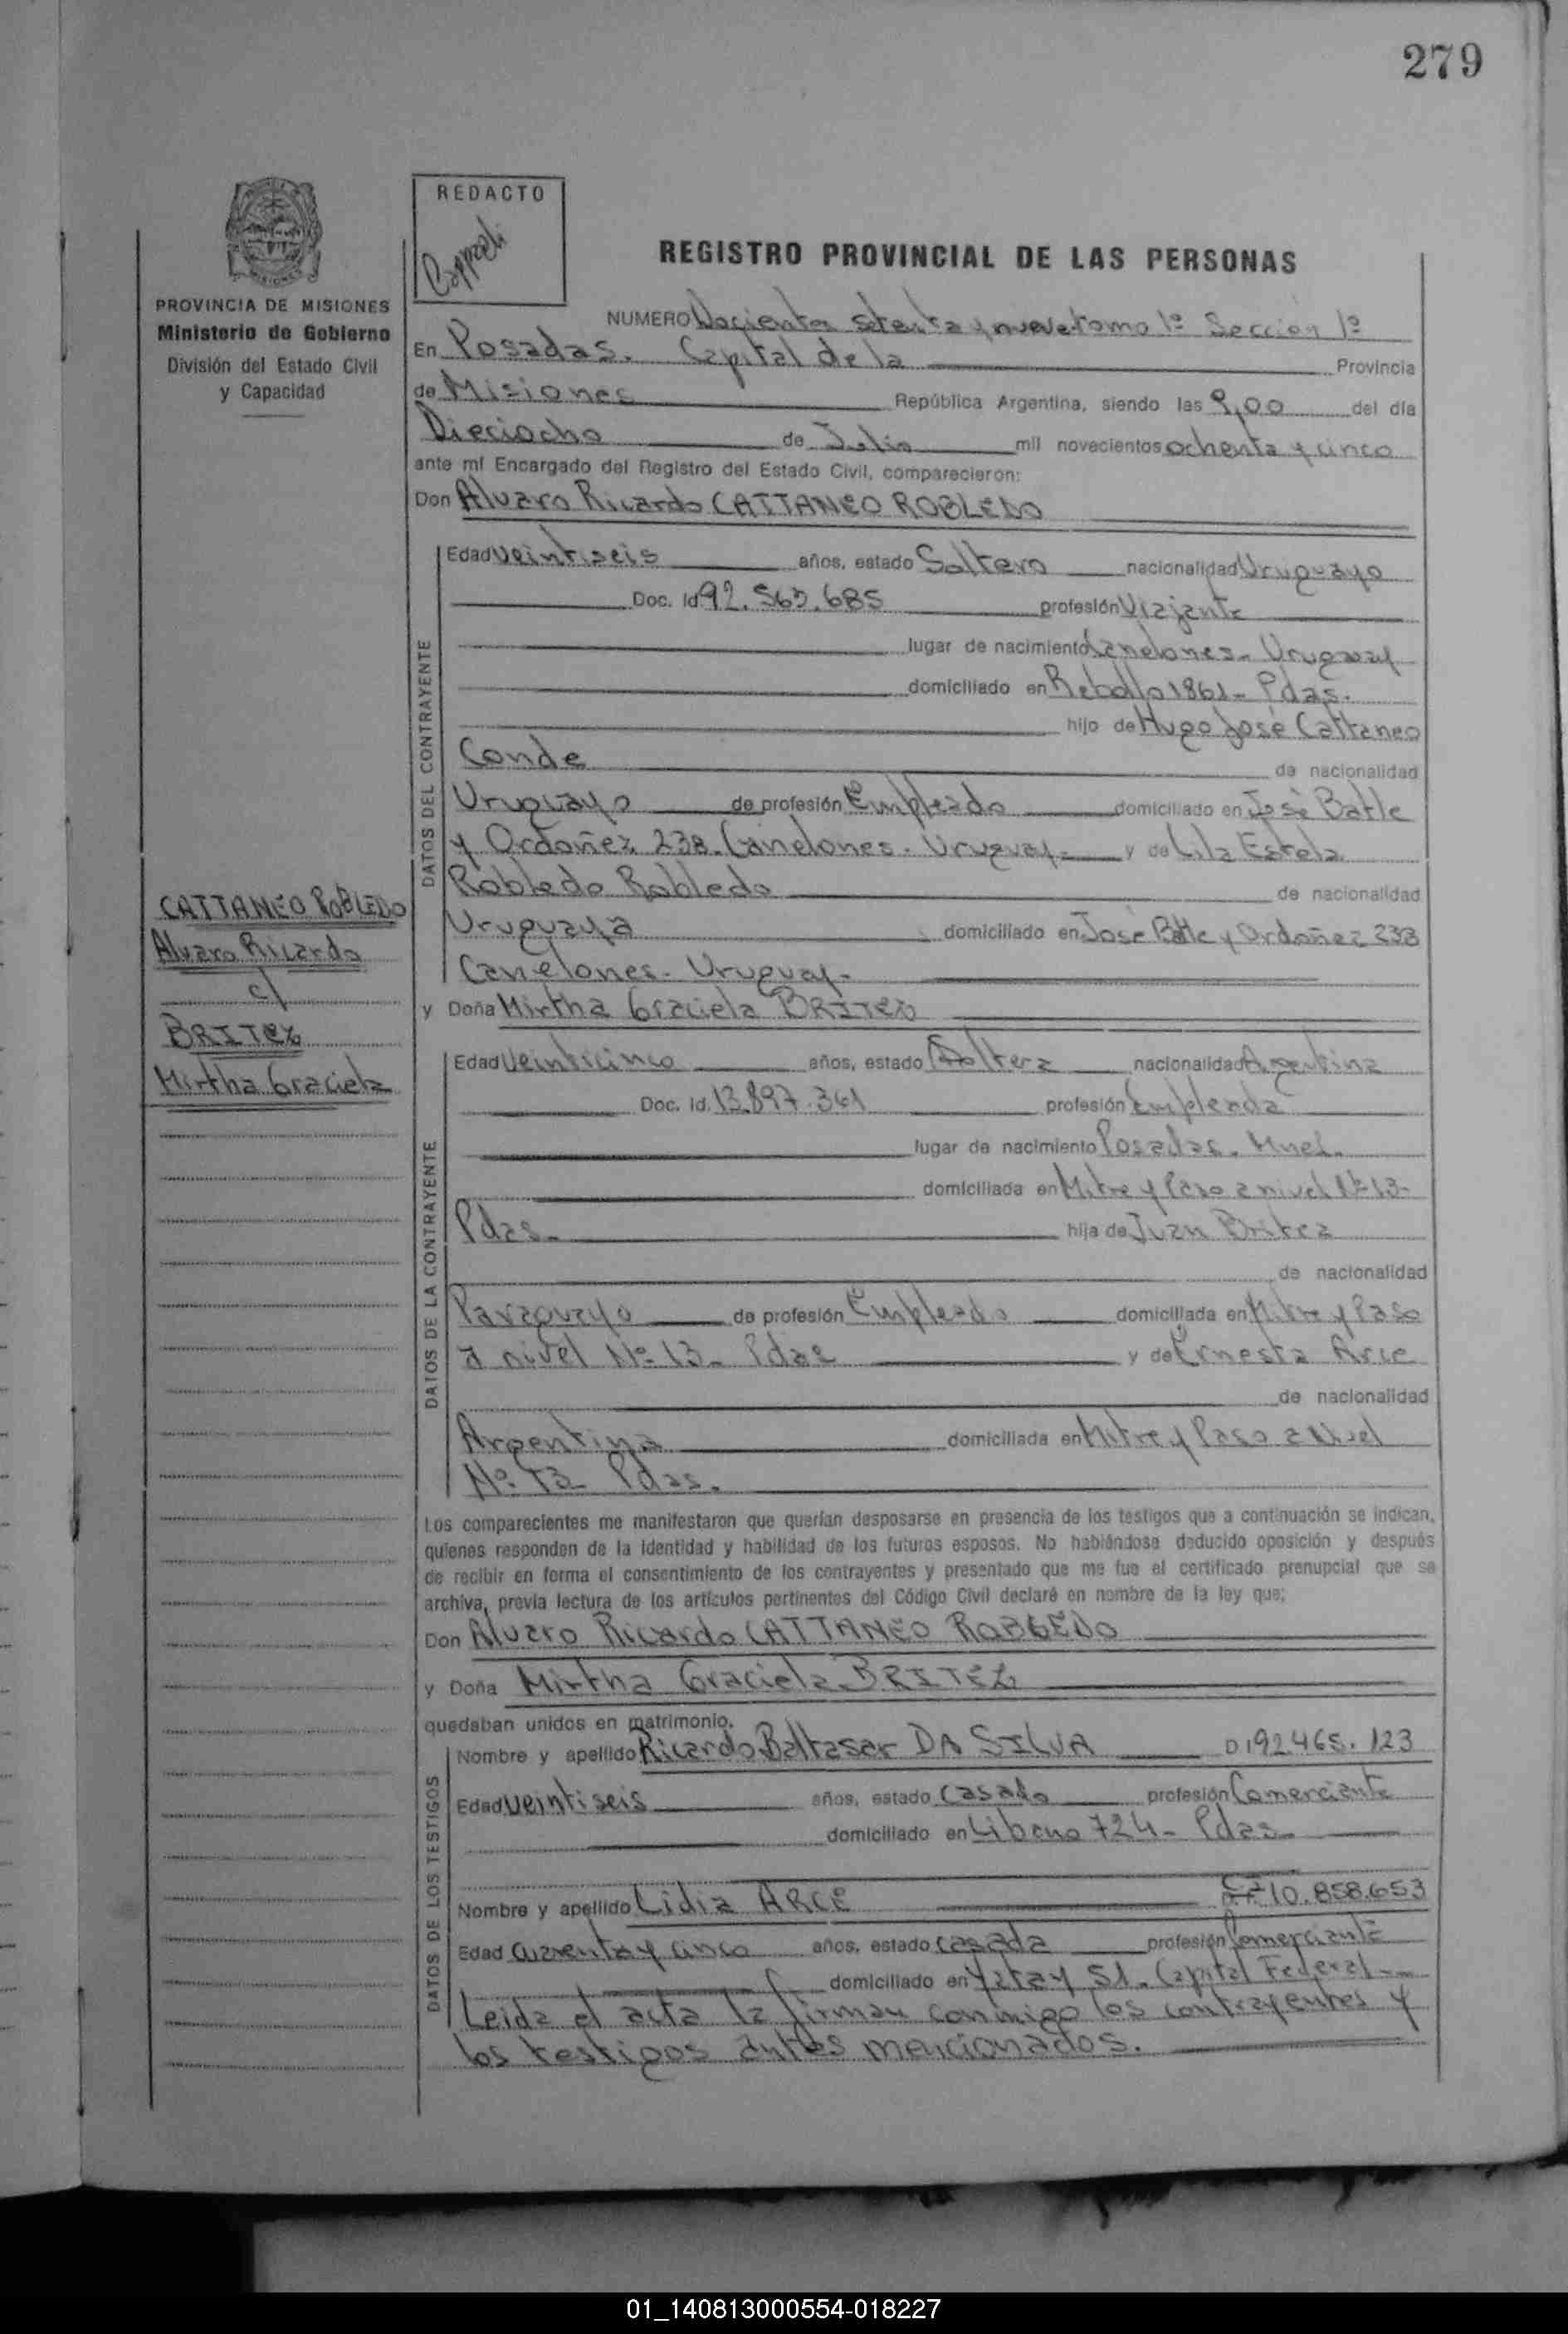 279
REDACTO
REGISTRO PROVINCIAL DE LAS PERSONAS
PROVINCIA DE MISIONES
Ministerio de Gobierno
División del Estado Civil
y Capacidad
NUMERO Docientos setenta y nueve tomo 1º Sección 1º
En Posadas. Capital de la Provincia
de Misiones República Argentina, siendo las 9,00 del día
Dieciocho de Julio mil novecientos ochenta y cinco
ante mí Encargado del Registro del Estado Civil, comparecieron:
Don Alvaro Ricardo CATTANEO ROBLEDO
DATOS DEL CONTRAYENTE
Edad veintiseis años, estado Soltero nacionalidad Uruguayo
Doc. Id 92.563.685 profesión Viajante
lugar de nacimiento Canelones - Uruguay
domiciliado en Rebollo 1861 - Pdas.
hijo de Hugo José Cattaneo
Conde de nacionalidad
Uruguayo de profesión Empleado domiciliado en José Batle
y Ordoñez 238. Canelones. Uruguay - y de Lila Estela
Robledo Robledo de nacionalidad
Uruguaya domiciliado en José Batle y Ordoñez 238
Canelones - Uruguay -
CATTANEO ROBLEDO
Alvaro Ricardo
c/
BRITEZ
Mirtha Graciela
y Doña Mirtha Graciela BRITEZ
DATOS DE LA CONTRAYENTE
Edad Veinticinco años, estado Soltera nacionalidad Argentina
Doc. Id. 13.897.361 profesión Empleada
lugar de nacimiento Posadas. Mnes.
domiciliada en Mitre y Paso a nivel Nº 13-
Pdas - hija de Juan Britez
de nacionalidad
Paraguayo de profesión Empleado domiciliada en Mitre y Paso
a nivel Nº 13 - Pdas y de Ernesta Arce
de nacionalidad
Argentina domiciliada en Mitre y Paso a Nivel
Nº 13 Pdas.
Los comparecientes me manifestaron que querían desposarse en presencia de los testigos que a continuación se indican,
quienes responden de la identidad y habilidad de los futuros esposos. No habiéndose deducido oposición y después
de recibir en forma el consentimiento de los contrayentes y presentado que me fue el certificado prenupcial que se
archiva, previa lectura de los artículos pertinentes del Código Civil declaré en nombre de la ley que:
Don Alvaro Ricardo CATTANEO ROBLEDO
y Doña Mirtha Graciela BRITEZ
quedaban unidos en matrimonio.
DATOS DE LOS TESTIGOS
Nombre y apellido Ricardo Baltasar DA SILVA DI 92 465. 123
Edad veintiseis años, estado casado profesión Comerciante
domiciliado en Libano 724 - Pdas -
Nombre y apellido Lidia ARCE 10.858.653
Edad cuarenta y cinco años, estado casada profesión Comerciante
domiciliado en Yatay 51. Capital Federal -
Leida el acta la firman conmigo los contrayentes y
los testigos antes mencionados.
01_140813000554-018227